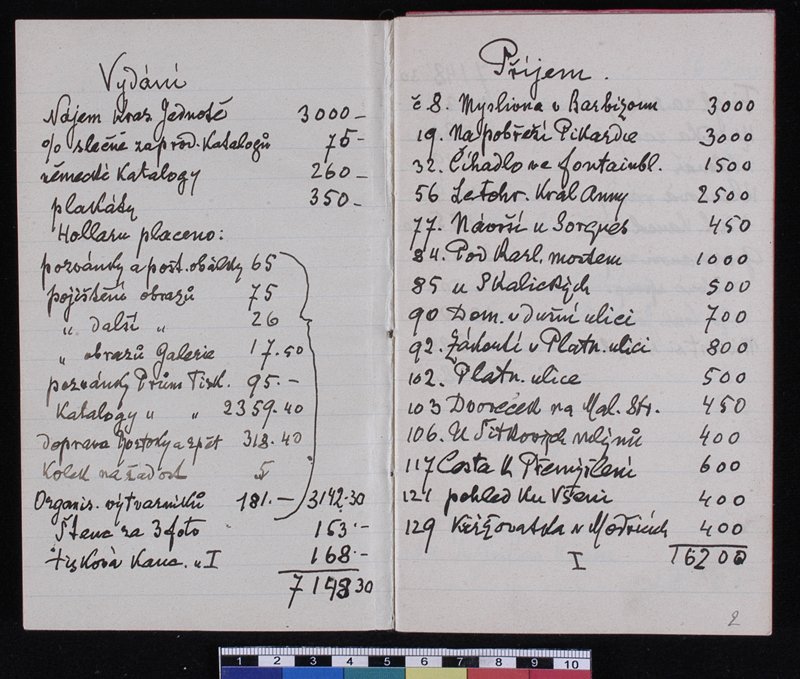 Vydání
Nájem Kras. Jednotě 3000 –
% slečně za prod. Katalogů 75 –
německé Katalogy 260 –
plakáty 350 –
Hollaru placeno:
pozvánky a pošt. obálky 65
pojištění obrazů 75
" další " 26
" obrazů Galerie 17.50
pozvánky Průmtisk. 95.–
Katalogy " " 2359.40
Doprava Roztoky a zpět 318.40
Kolek na žádost 5
Organis. výtvarníků 181.– 3142.30
Štenc za 3 foto 153.–
tisková Kanc. I 168.–
7148 30
Příjem.
č 8. Myslivna v Barbizonu 3000
19. Na pobřeží Pikardie 3000
32. Čihadlo ve fontainbl. 1500
56 Letohr. Král Anny 2500
77. Návrší u Sorgues 450
84. Pod Karl. mostem 1000
85 u Skalických 500
90 Dom. v Dušní ulici 700
92. Zákoutí v Platn. ulici 800
102. Platn. ulice 500
103 Dvoreček na Mal. Str. 450
106. U Šitkových mlýnů 400
117 Cesta K Přemyšlení 600
121 pohled Ku Všeni 400
129 Křižovatka v Modřicích 400
I 16200
2
1 2 3 4 5 6 7 8 9 10